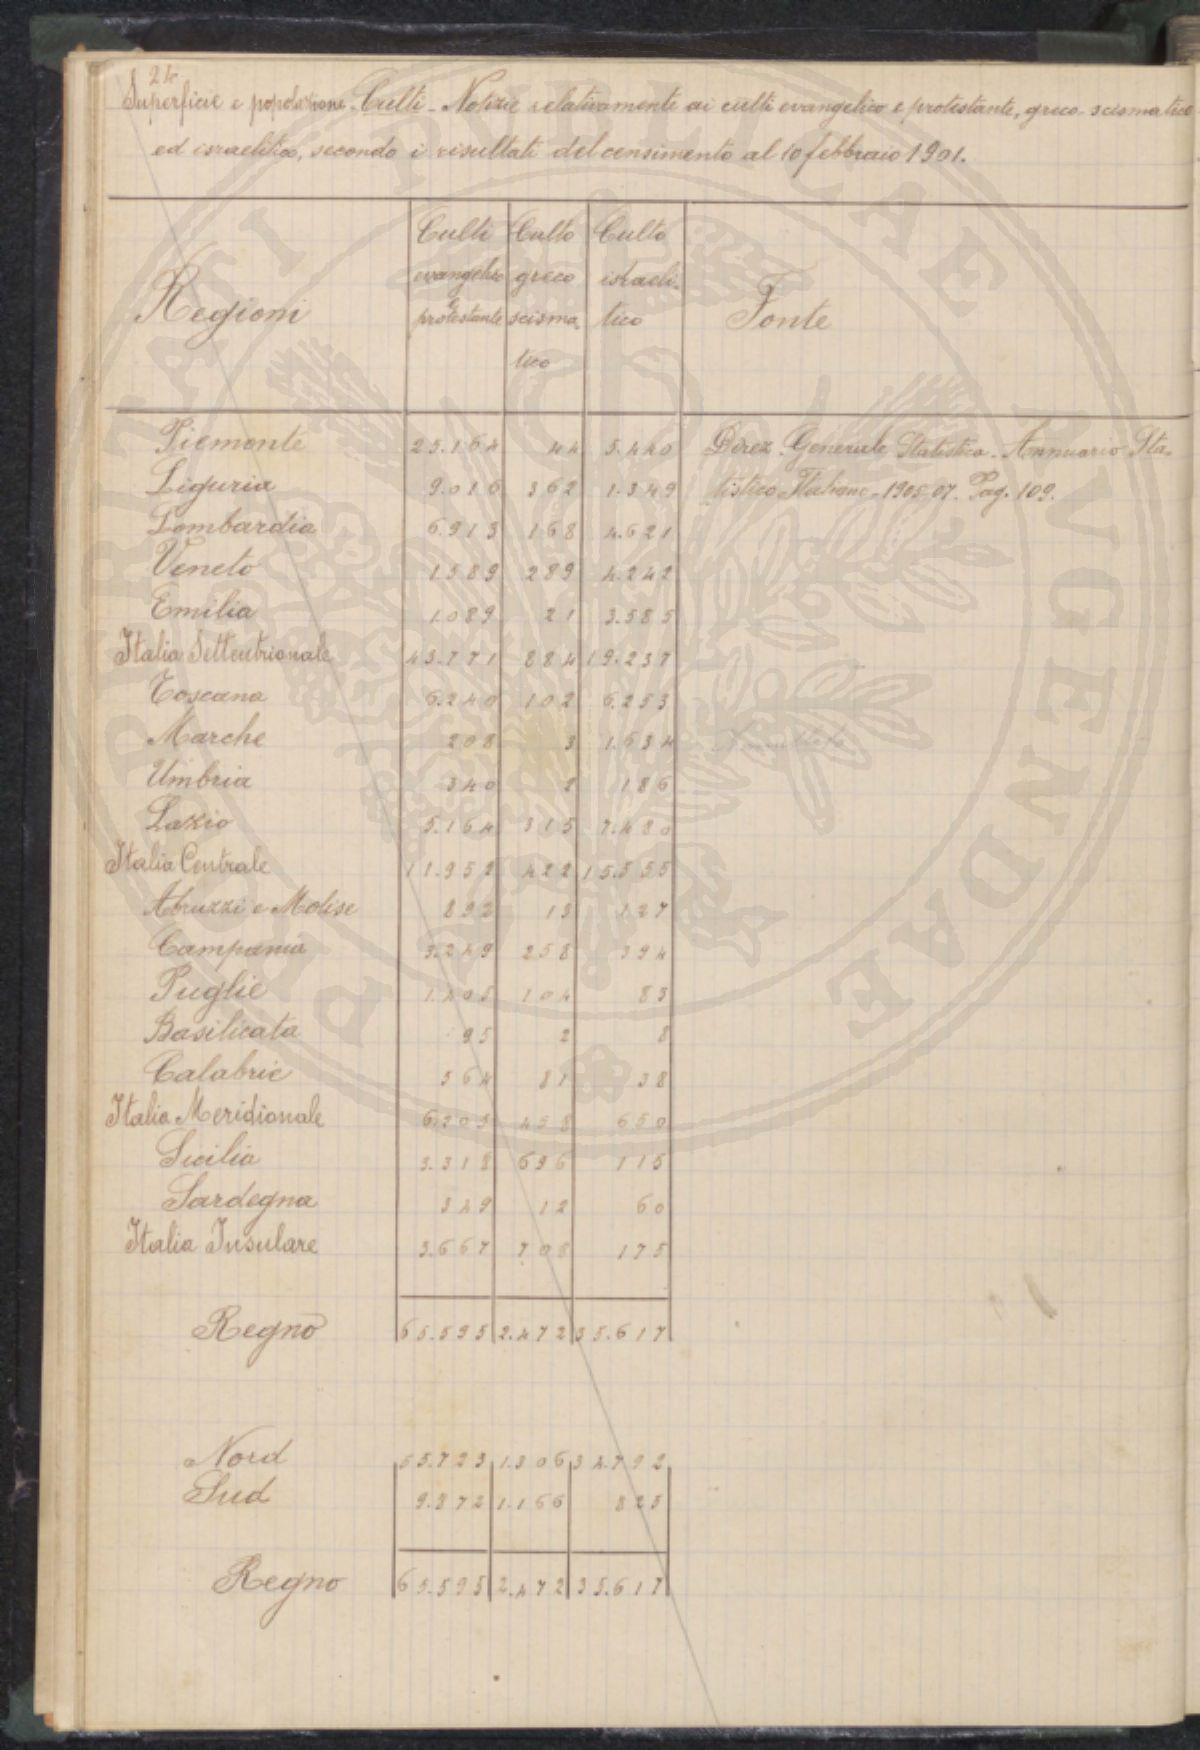 24
Superficie e popolazione - Culti - Notizie relativamente ai culti evangelico e protestante, greco-scismatico
ed israelitico, secondo i risultati del censimento al 10 febbraio 1901.
Regioni Culti evangelico e protestante Culto greco scismatico Culto israelitico Fonte
Piemonte 25.164 44 5.440 Direz. Generale Statistica - Annuario Sta-
Liguria 9.016 362 1.349 tistico Italiano - 1905-07. Pag. 109.
Lombardia 6.913 168 4.621
Veneto 1589 289 4.242
Emilia 1.089 21 3.585
Italia Settentrionale 43.771 884 19.237
Toscana 6.240 102 6.255
Marche 208 3 1.634
Umbria 340 2 186
Lazio 5.164 315 7.480
Italia Centrale 11.952 422 15.555
Abruzzi e Molise 892 13 127
Campania 3.249 258 394
Puglie 1.405 104 83
Basilicata 95 2 8
Calabrie 564 81 38
Italia Meridionale 6.205 458 650
Sicilia 3.318 696 115
Sardegna 349 12 60
Italia Insulare 3.667 708 175
Regno 65.595 2.472 35.617
Nord 55.723 1.306 34.792
Sud 9.872 1.166 825
Regno 65.595 2.472 35.617